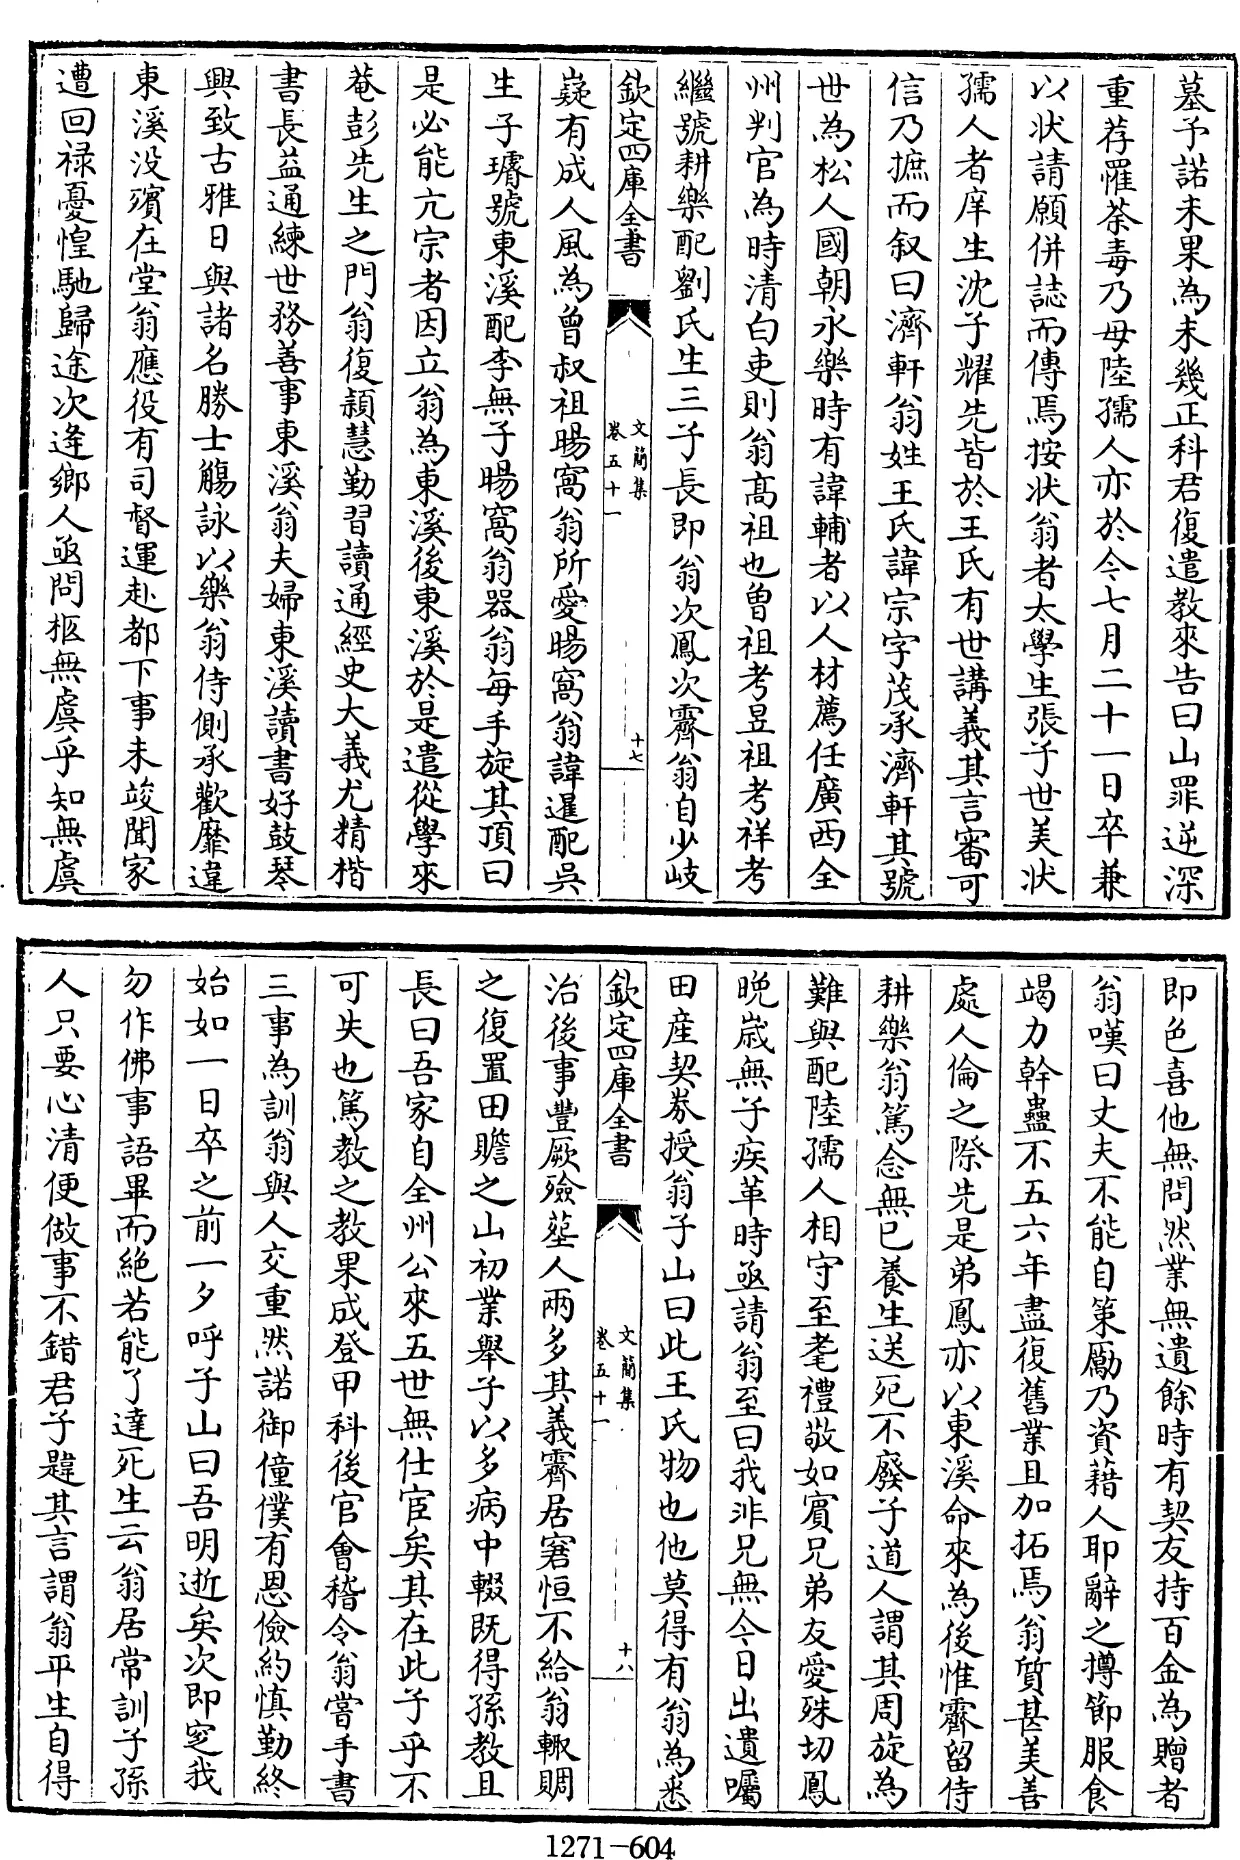 墓予諾未果為未幾正科君復遣教來告曰山罪逆深
重荐罹荼毒乃母陸孺人亦於今七月二十一日卒兼
以狀請願併誌而傳焉按狀翁者太學生張子世美狀
孺人者庠生沈子耀先皆於王氏有世講義其言審可
信乃摭而叙曰濟軒翁姓王氏諱宗字茂承濟軒其號
世為松人國朝永樂時有諱輔者以人材薦任廣西全
州判官為時清白吏則翁髙祖也曽祖考昱祖考祥考
繼號耕樂配劉氏生三子長即翁次鳳次霽翁自少岐
欽定四庫全書
文簡集
卷五十一
十七
嶷有成人風為曾叔祖暘窩翁所愛暘窩翁諱暹配吳
生子璿號東溪配李無子暘窩翁器翁每手旋其頂曰
是必能亢宗者因立翁為東溪後東溪於是遣從學來
菴彭先生之門翁復頴慧勤習讀通經史大義尤精楷
書長益通練世務善事東溪翁夫婦東溪讀書好鼓琴
興致古雅日與諸名勝士觴詠以樂翁侍側承歡靡違
東溪没殯在堂翁應役有司督運赴都下事未竣聞家
遭回禄憂惶馳歸途次逄鄉人亟問柩無虞乎知無虞
即色喜他無問然業無遺餘時有契友持百金為贈者
翁嘆曰丈夫不能自策勵乃資藉人耶辭之撙節服食
竭力幹蠱不五六年盡復舊業且加拓焉翁質甚美善
處人倫之際先是弟鳳亦以東溪命來為後惟霽留侍
耕樂翁篤念無已養生送死不廢子道人謂其周旋為
難與配陸孺人相守至耄禮敬如賓兄弟友愛殊切鳳
晩歳無子疾革時亟請翁至曰我非兄無今日出遺囑
田産契劵授翁子山曰此王氏物也他莫得有翁為悉
欽定四庫全書
文簡集
卷五十一
十八
治後事豐厥殮塟人兩多其義霽居窘恒不給翁輙賙
之復置田贍之山初業舉子以多病中輟既得孫教且
長曰吾家自全州公來五世無仕宦矣其在此子乎不
可失也篤教之教果成登甲科後官會稽令翁嘗手書
三事為訓翁與人交重然諾御僮僕有恩儉約慎勤終
始如一日卒之前一夕呼子山曰吾明逝矣次即窆我
勿作佛事語畢而絶若能了達死生云翁居常訓子孫
人只要心清便做事不錯君子韙其言謂翁平生自得
1271-604